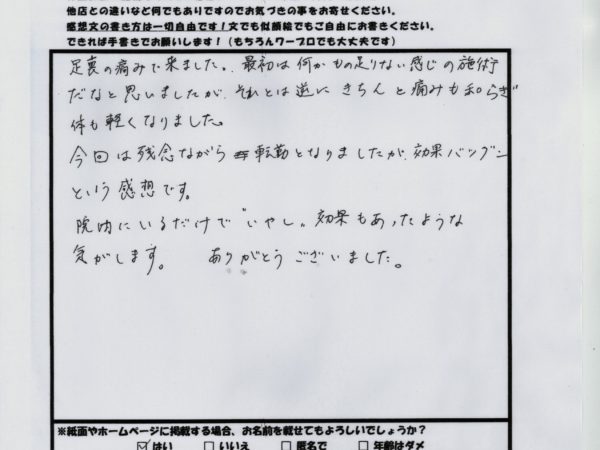 他店との違いなど何でもありですのでお気づきの事をお寄せください。
感想文の書き方は一切自由です！文でも似顔絵でもご自由にお書きください。
できれば手書きでお願いします！（もちろんワープロでも大丈夫です）
足裏の痛みで来ました。最初は何かもの足りない感じの施術
だなと思いましたが、それとは逆にきちんと痛みも和らぎ
体も軽くなりました。
今回は残念ながら転勤となりましたが、効果バツグン
という感想です。
院内にいるだけで"いやし"効果もあったような
気がします。 ありがとうございました。
※紙面やホームページに掲載する場合、お名前を載せてもよろしいでしょうか？
☑はい □いいえ □匿名で □年齢はダメ